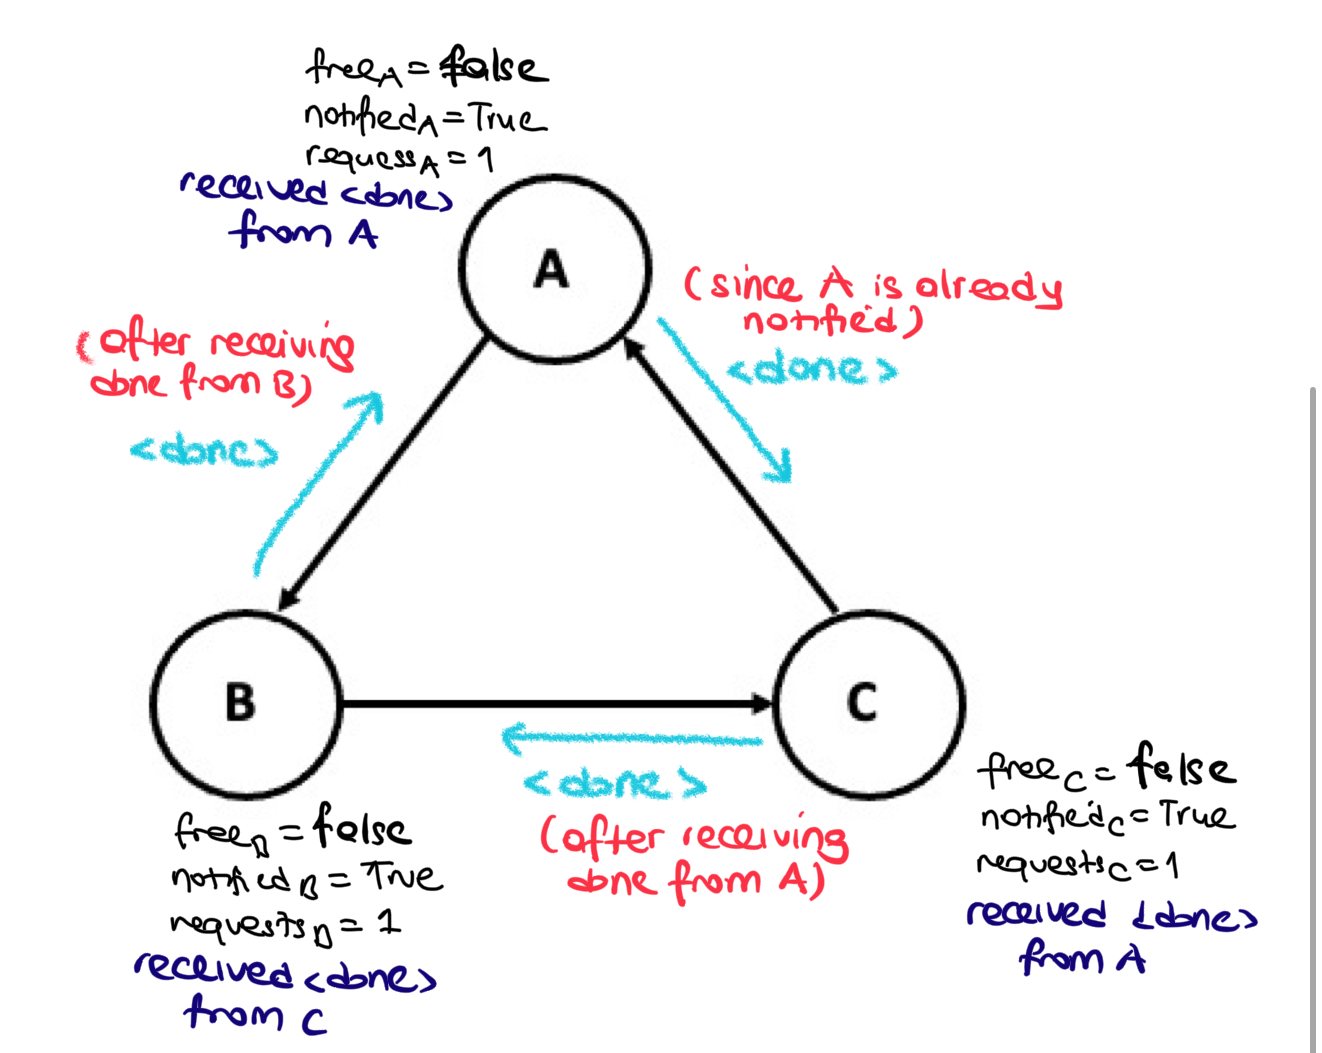 freeA = false
notifiedA = True
requessA = 1
received <done>
from A
A
(since A is already
notified)
<done>
(after receiving
done from B)
<done>
B
C
<done>
(after receiving
done from A)
freeB = false
notifiedB = True
requestsB = 1
received <done>
from C
freeC = false
notifiedC = True
requestsC = 1
received <done>
from A